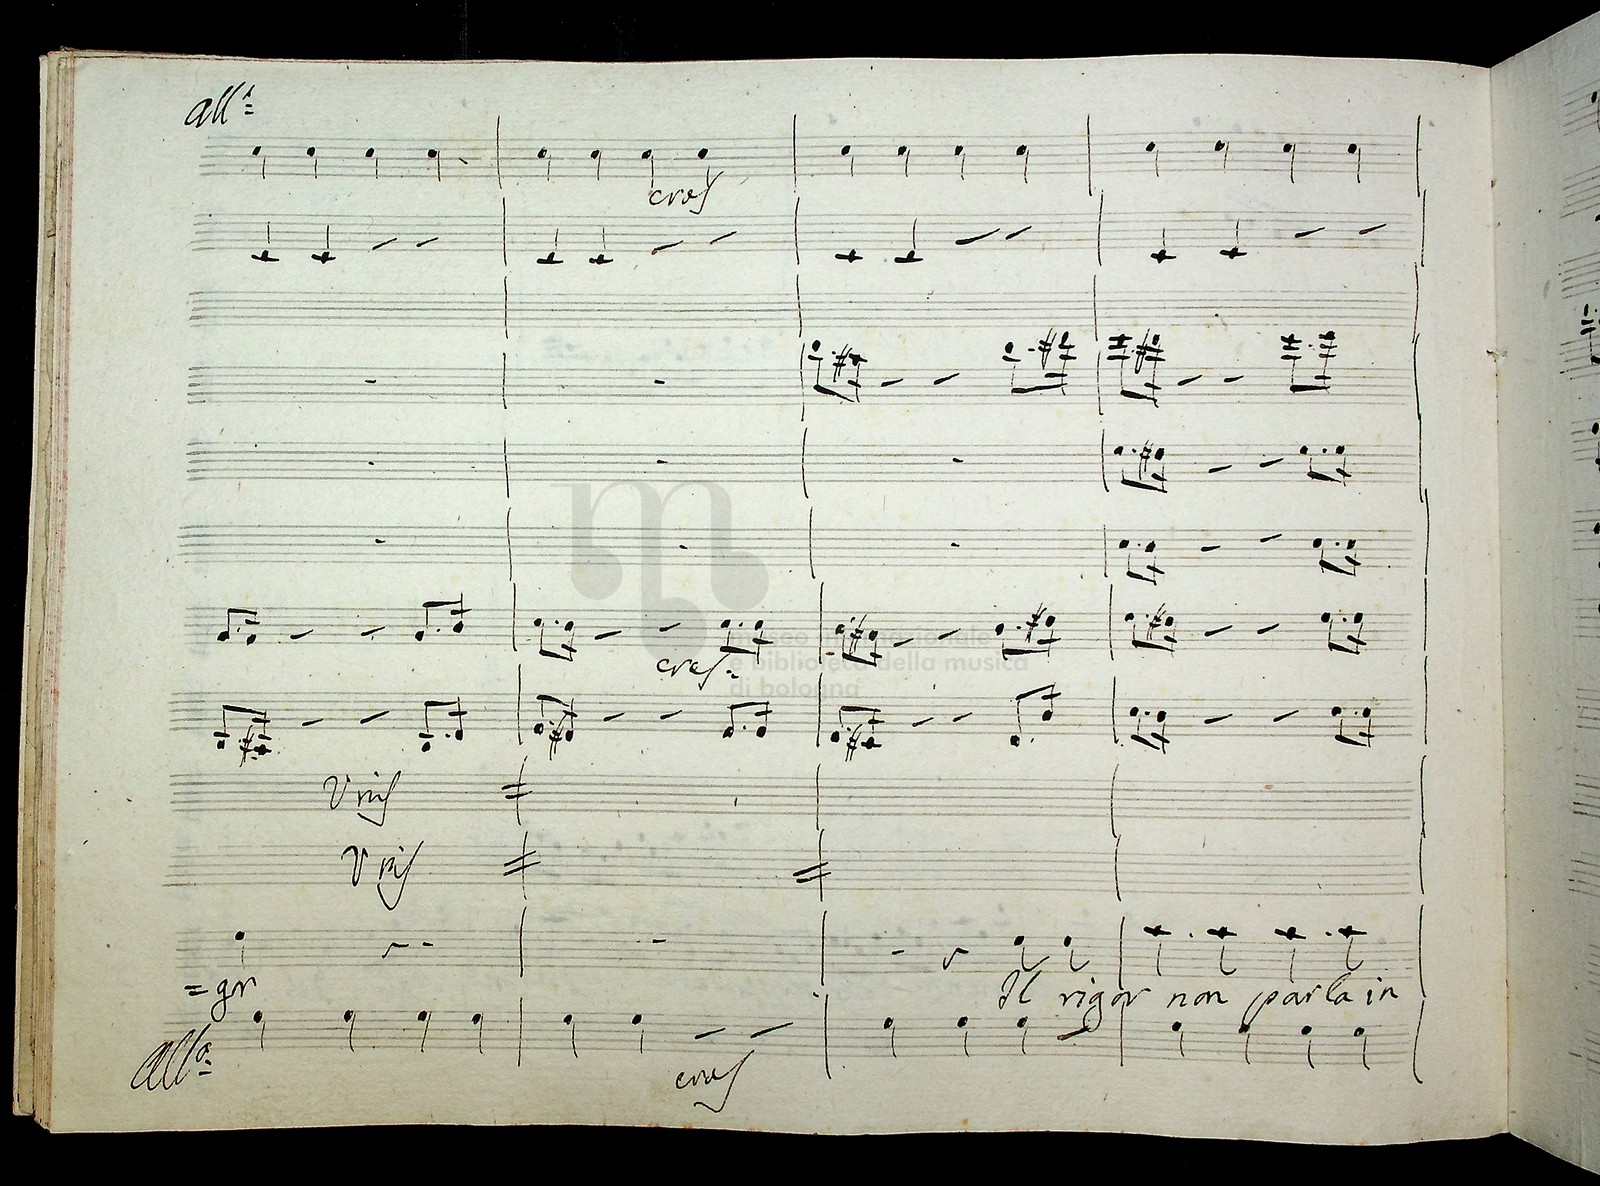 all.º
cres
museo internazionale
e biblioteca della musica
di bologna
cres.
Unis
Unis
=gr
Il rigor non parla in
All.º
cres